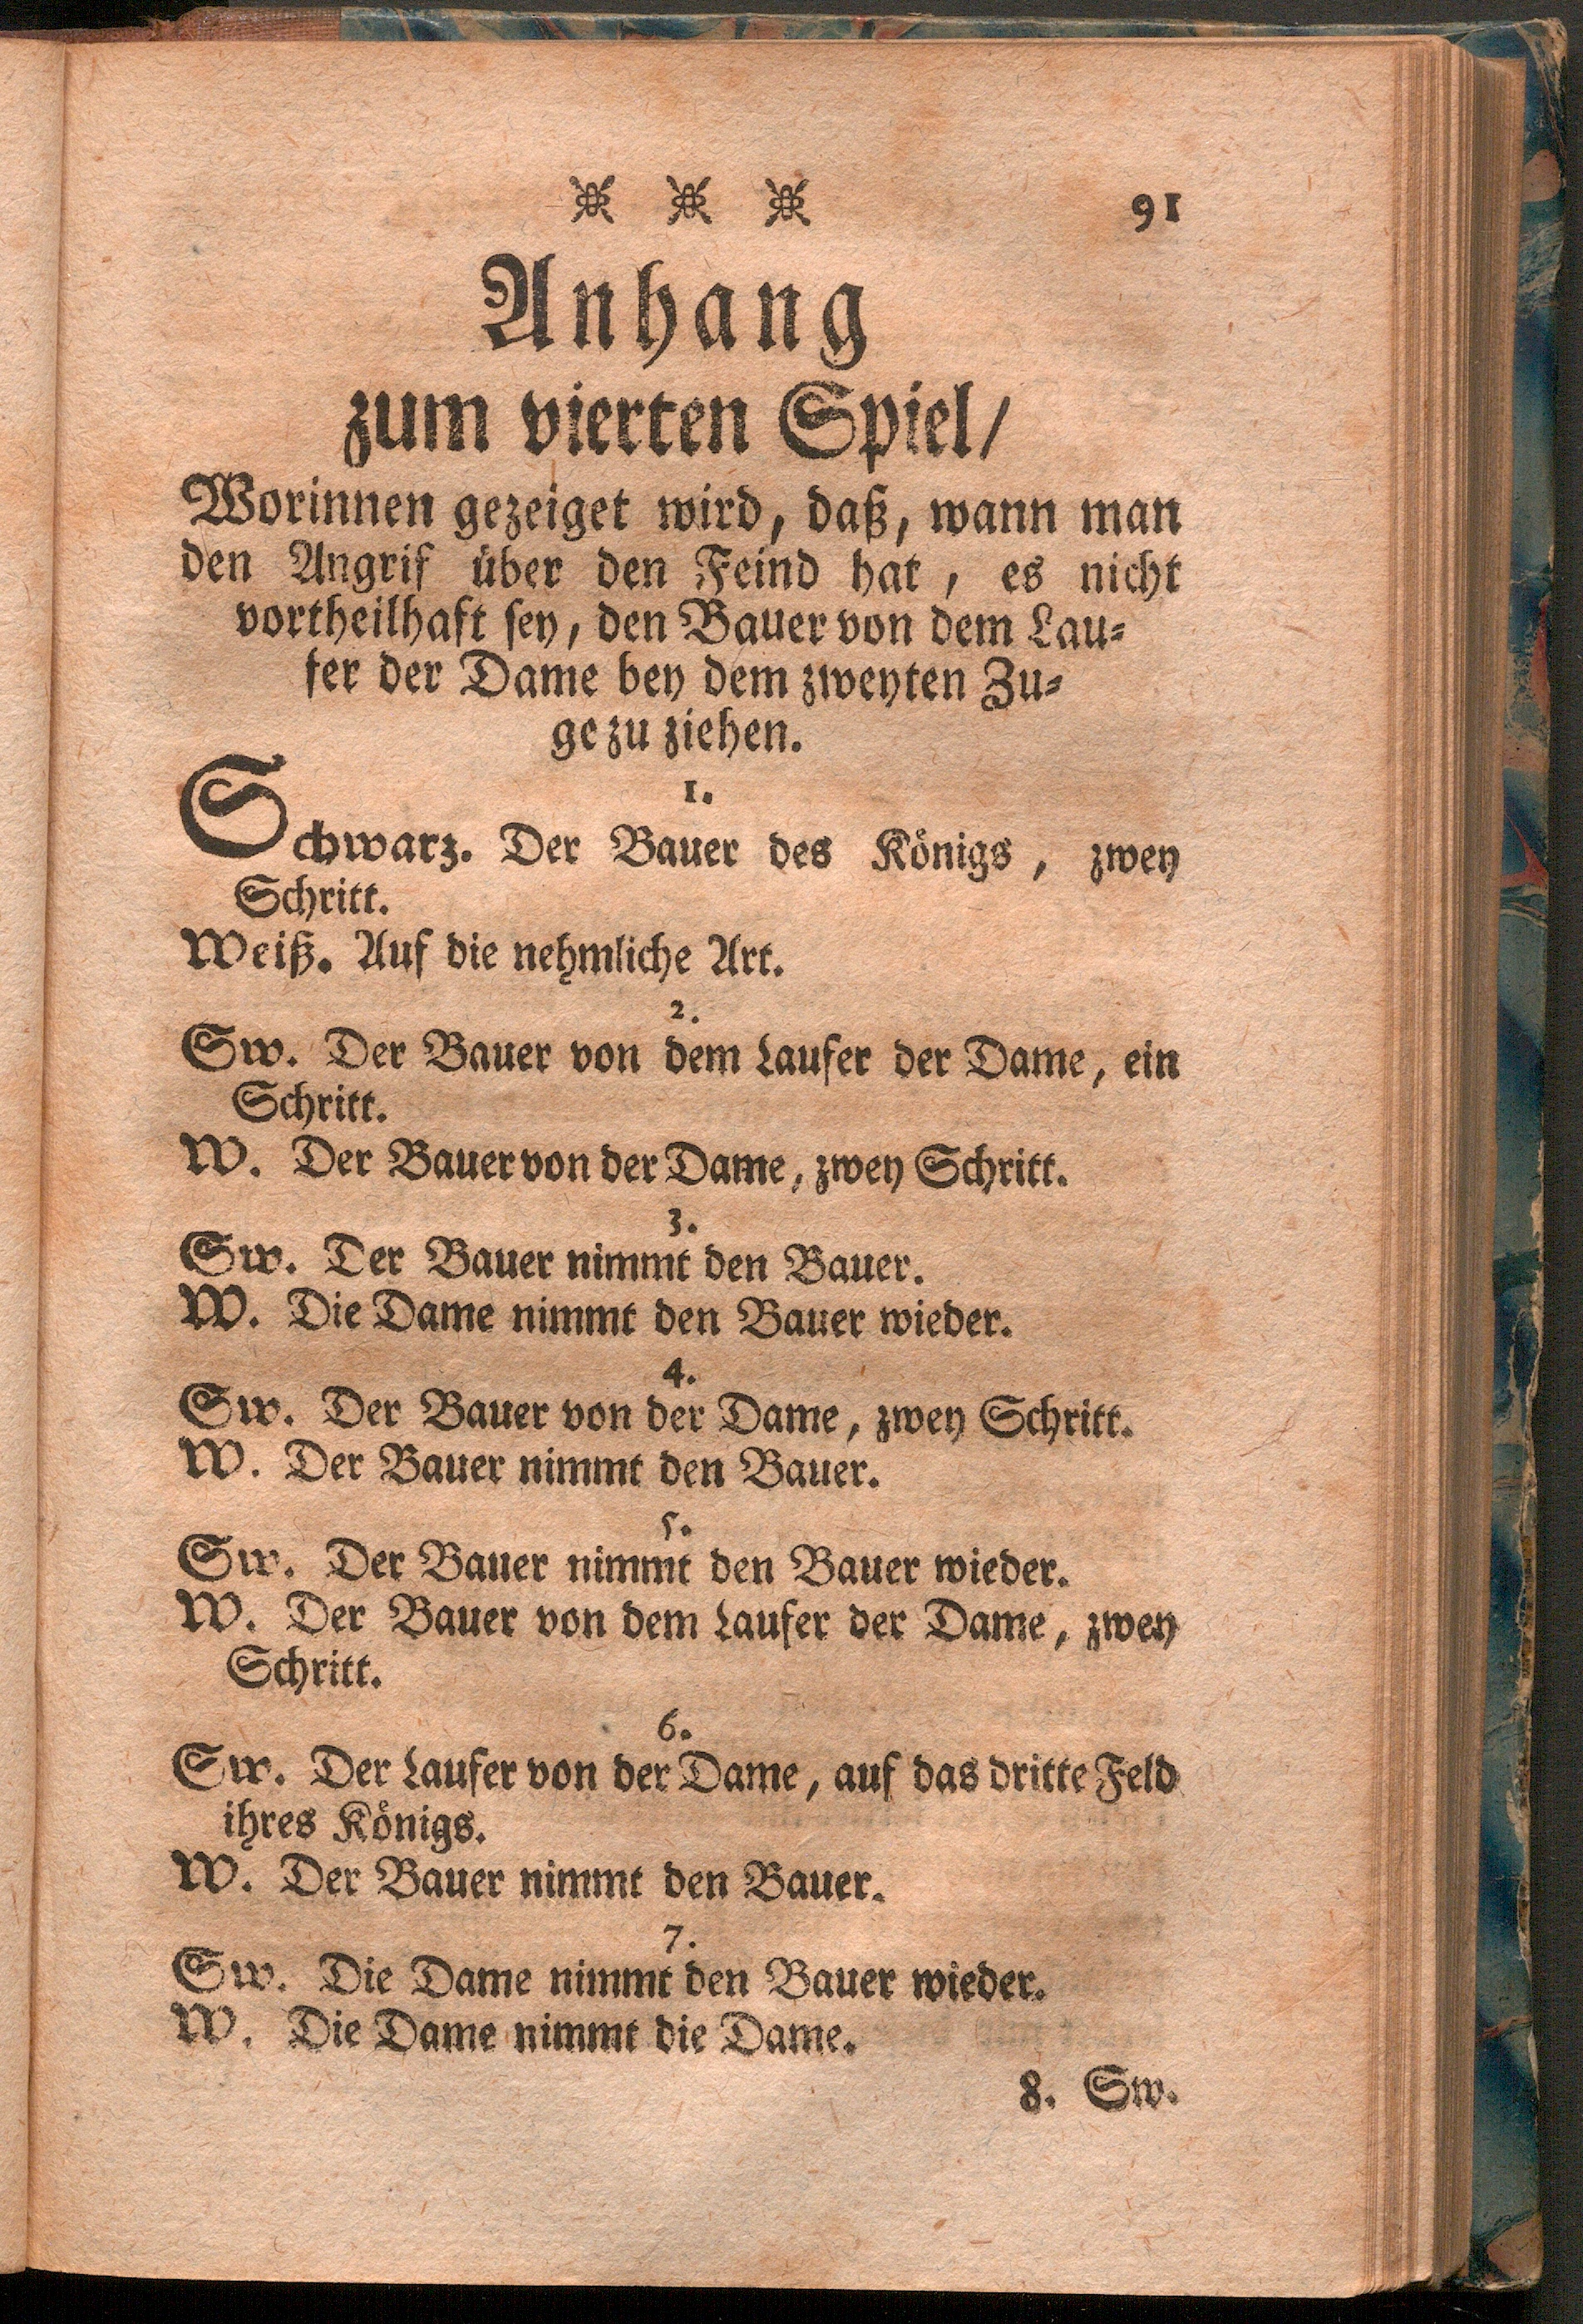 91
Anhang
zum vierten Spiel/
Worinnen gezeiget wird, daß, wann man
den Angrif über den Feind hat, es nicht
vortheilhaft sey, den Bauer von dem Lau⸗
fer der Dame bey dem zweyten Zu⸗
ge zu ziehen.
1.
Schwarz. Der Bauer des Königs, zwey
Schritt.
Weiß. Auf die nehmliche Art.
2.
Sw. Der Bauer von dem Laufer der Dame, ein
Schritt.
W. Der Bauer von der Dame, zwey Schritt.
3.
Sw. Der Bauer nimmt den Bauer.
W. Die Dame nimmt den Bauer wieder.
4.
Sw. Der Bauer von der Dame, zwey Schritt.
W. Der Bauer nimmt den Bauer.
5.
Sw. Der Bauer nimmt den Bauer wieder.
W. Der Bauer von dem Laufer der Dame, zwey
Schritt.
6.
Sw. Der Laufer von der Dame, auf das dritte Feld
ihres Königs.
W. Der Bauer nimmt den Bauer.
7.
Sw. Die Dame nimmt den Bauer wieder.
W. Die Dame nimmt die Dame.
8. Sw.